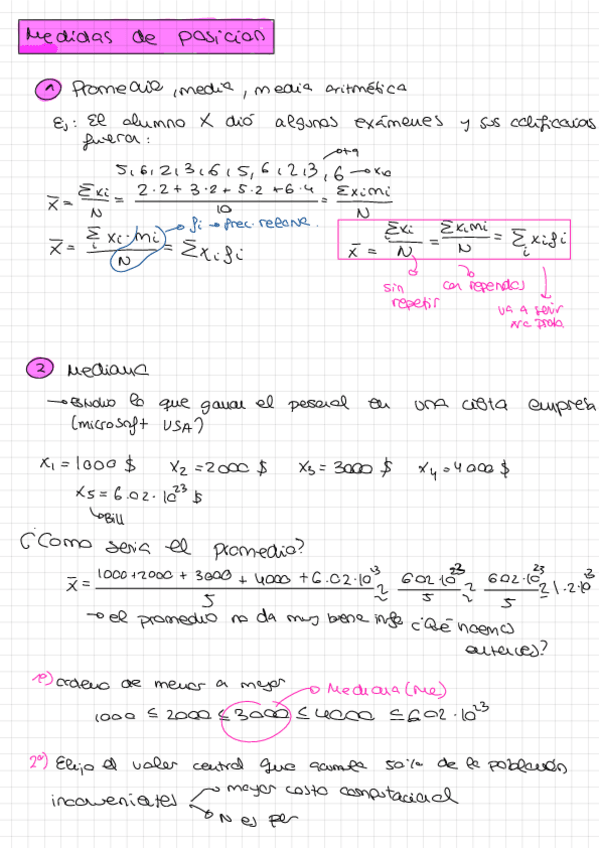 Medidas de posicion
1 Promedio, media, media aritmética
Ej: El alumno X dió algunos exámenes y sus calificacions
fueron:
5, 6, 2, 3, 6, 5, 6, 2, 3, 6
x̄ = Σxi/N = (2·2 + 3·2 + 5·2 + 6·4)/10 = Σximi/N
x̄ = Σi xi·mi/N = Σxifi → fi → frec. relativa.
x̄ = Σxi/N = Σximi/N = Σi xifi
sin repetir
con repetidos
va a servir
2 Mediana
→ Estudio lo que ganan el personal en una cierta empresa
(microsoft USA)
x1 = 1000 $ x2 = 2000 $ x3 = 3000 $ x4 = 4000 $
x5 = 6.02·10²³ $
Bill
¿Como seria el promedio?
x̄ = (1000+2000+3000+4000+6.02·10²³)/5 ≃ 602·10²³/5 ≃ 602·10²³/5 ≃ 1.2·10²³
→ el promedio no da muy buena info ¿Qué hacemos
entonces?
1º) ordeno de menor a mayor → Mediana (Me)
1000 ≤ 2000 ≤ 3000 ≤ 4000 ≤ 602·10²³
2º) Elijo el valor central que acumula 50% de la población
inconvenientes → mayor costo computacional
→ N es par